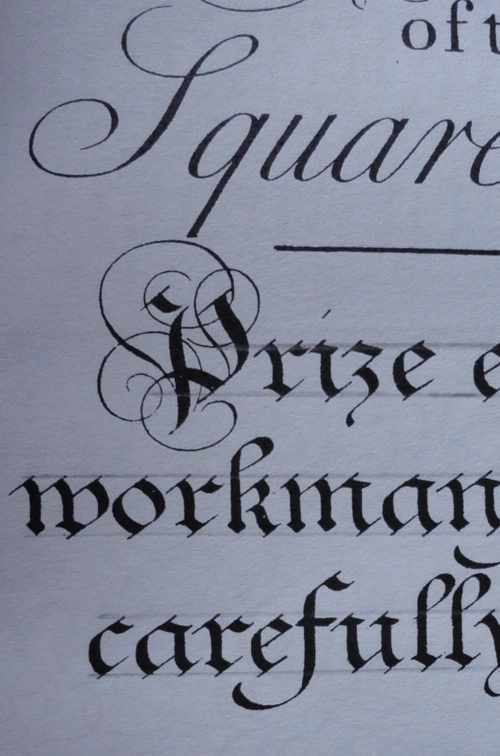 of t
Square
Prize e
workman
carefully